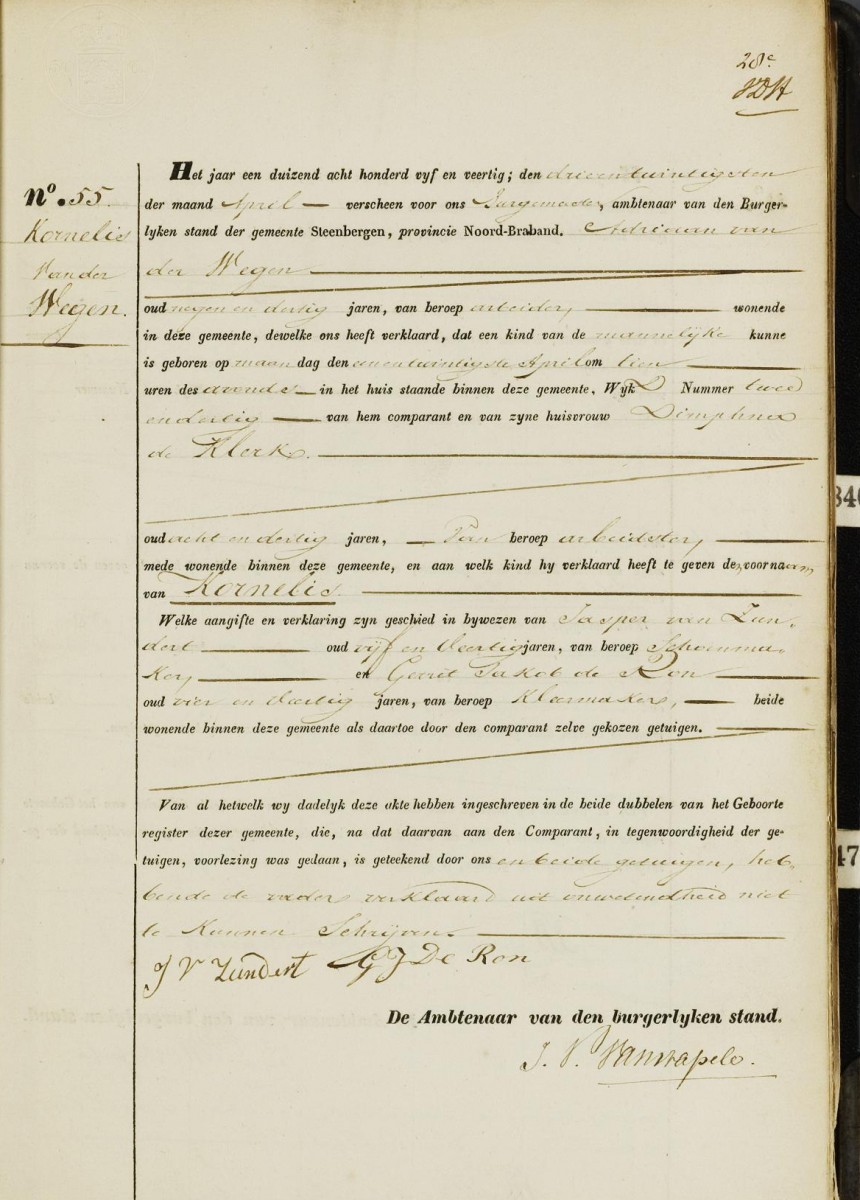 28e
VDH
No. 55.
Kornelis
Van der
Wegen.
Het jaar een duizend acht honderd vyf en veertig; den drieentwintigsten
der maand April — verscheen voor ons Burgemeester, ambtenaar van den Burger-
lyken stand der gemeente Steenbergen, provincie Noord-Braband. Adriaan van
der Wegen
oud negen en dertig jaren, van beroep arbeider, wonende
in deze gemeente, dewelke ons heeft verklaard, dat een kind van de mannelijke kunne
is geboren op maandag den eenentwintigste April om tien
uren des avonds — in het huis staande binnen deze gemeente, Wyk D Nummer twee
endertig — van hem comparant en van zyne huisvrouw Dimphna
de Klerk.
oud acht en dertig jaren, — Van beroep arbeidster,
mede wonende binnen deze gemeente, en aan welk kind hy verklaard heeft te geven den voornaam
van Kornelis.
Welke aangifte en verklaring zyn geschied in bywezen van Jasper van Zun-
dert oud vijf en Veertig jaren, van beroep Schoenma-
ker, en Gerrit Jakob de Ron
oud vier en Veertig jaren, van beroep Kleermaker, — beide
wonende binnen deze gemeente als daartoe door den comparant zelve gekozen getuigen.
Van al hetwelk wy dadelyk deze akte hebben ingeschreven in de beide dubbelen van het Geboorte
register dezer gemeente, die, na dat daarvan aan den Comparant, in tegenwoordigheid der ge-
tuigen, voorlezing was gedaan, is geteekend door ons en beide getuigen, heb-
bende de vader verklaard uit onwetendheid niet
te Kunnen Schrijven.
J V Zundert G J De Ron
De Ambtenaar van den burgerlyken stand.
J. P.